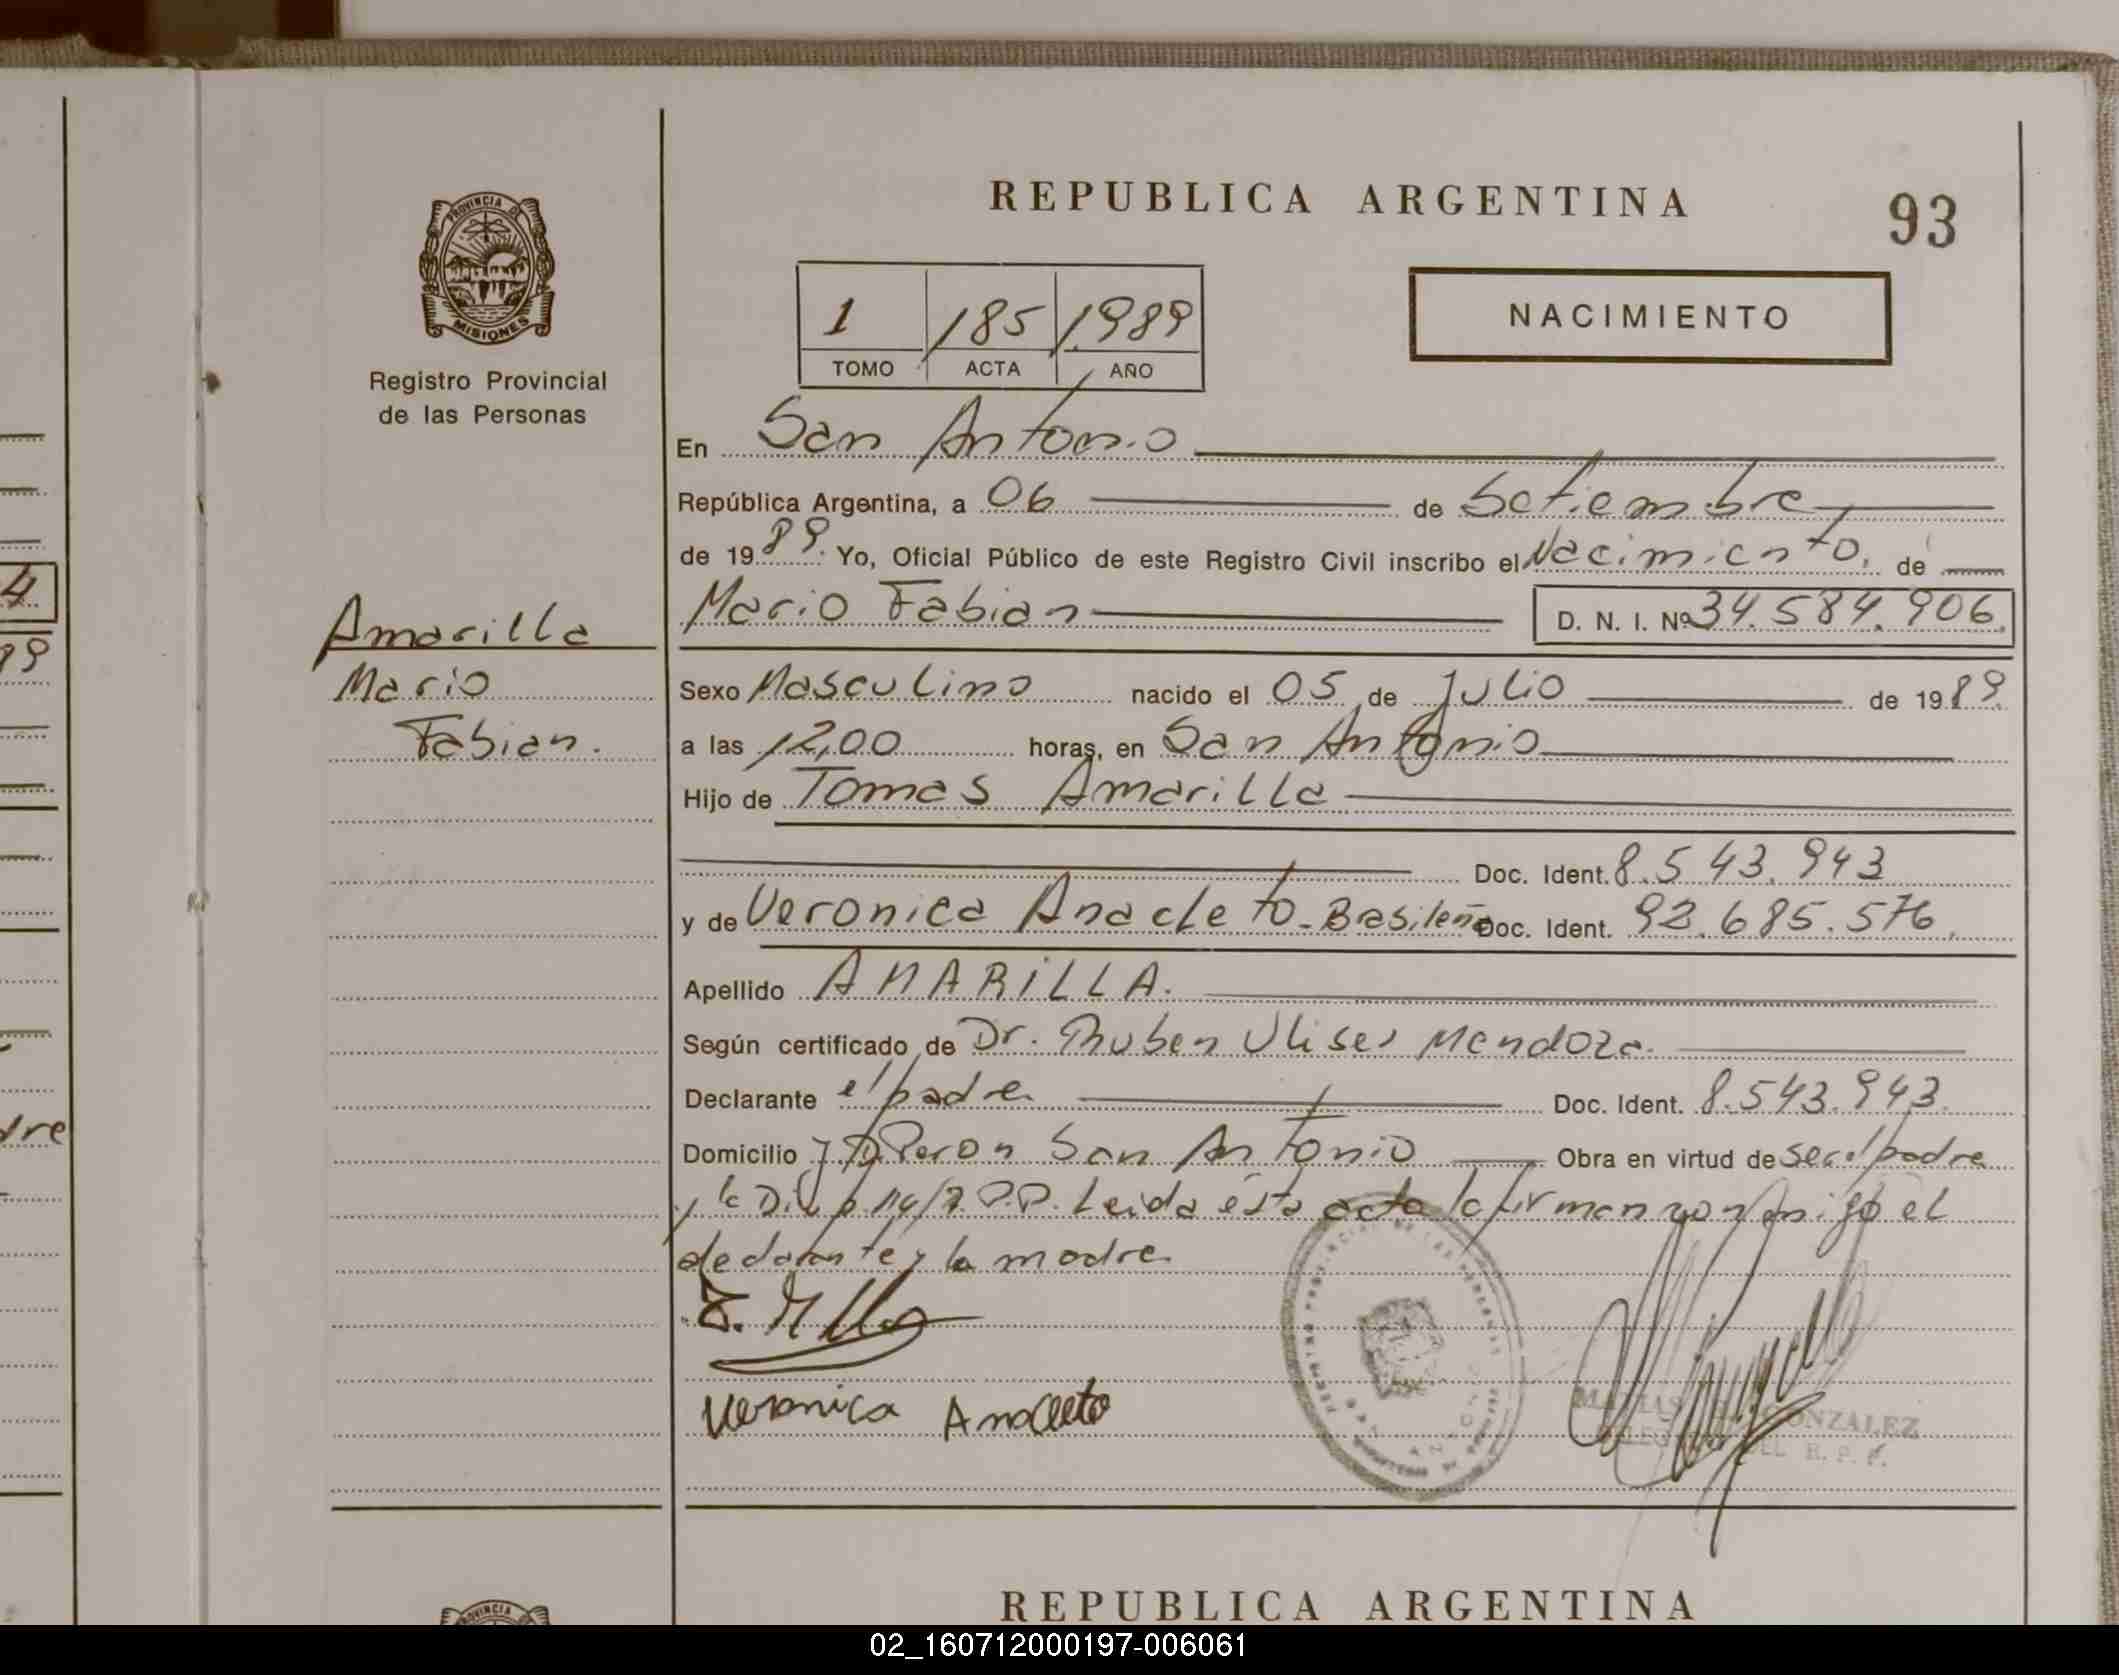 REPUBLICA ARGENTINA
93
PROVINCIA DE
MISIONES
Registro Provincial
de las Personas
1 185 1989
TOMO ACTA AÑO
NACIMIENTO
En San Antonio
República Argentina, a 06 de Setiembre
de 1989. Yo, Oficial Público de este Registro Civil inscribo el Nacimiento, de
Mario Fabian D. N. I. Nº 34.584.906.
Amarilla
Mario
Fabian.
Sexo Masculino nacido el 05 de Julio de 1989.
a las 12,00 horas, en San Antonio
Hijo de Tomas Amarilla
Doc. Ident. 8.543.943
y de Veronica Anacleto - Brasileña Doc. Ident. 92.685.576.
Apellido AMARILLA.
Según certificado de Dr. Ruben Ulises Mendoza.
Declarante el padre Doc. Ident. 8.543.943.
Domicilio J.D. Peron San Antonio Obra en virtud de ser el padre
y la P.P. Leida ésta acta la firman conmigo el
declarante y la madre
Veronica Anacleto
GONZALEZ
DEL R. P. P.
4
89
dre
REPUBLICA ARGENTINA
PROVINCIA DE
02_160712000197-006061